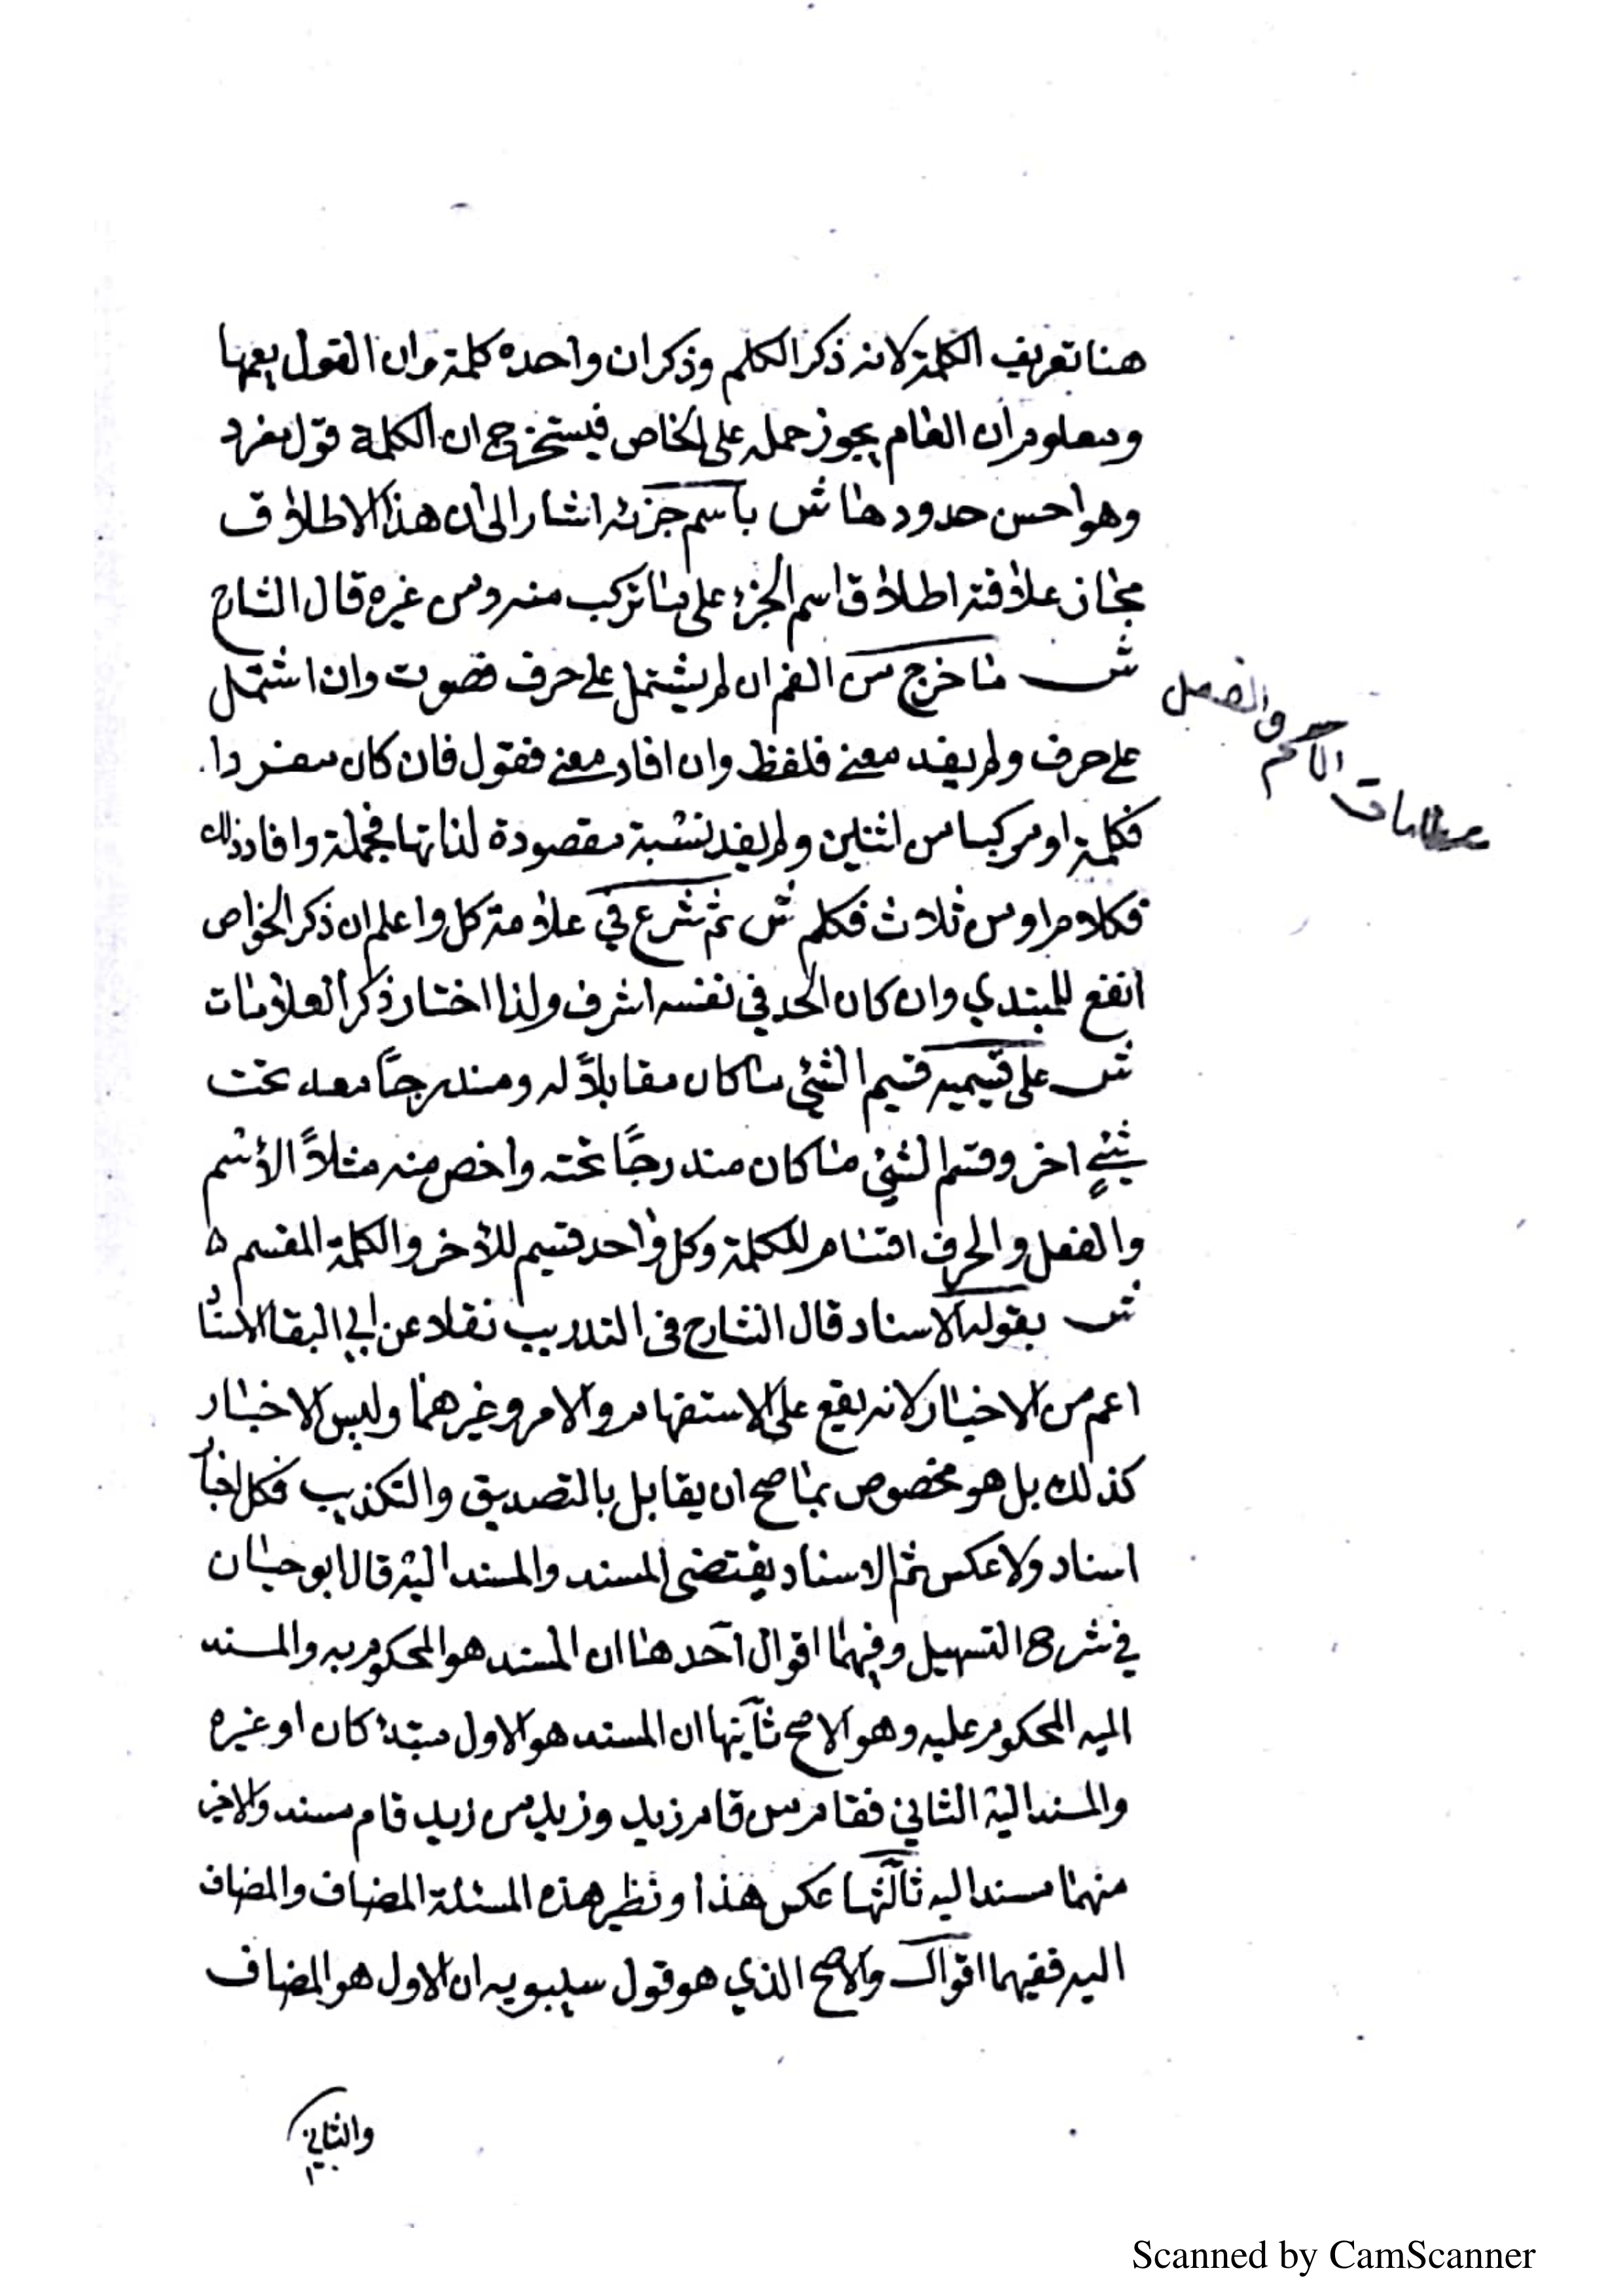 هنا تعريف الكلمة لانه ذكر الكلم وذكر ان واحده كلمة وان القول يعمها
ومعلوم ان العام يجوز حمله على الخاص فيستخرج ان الكلمة قول مفرد
وهو احسن حدودها ش باسم جزئه اشار الى ان هذا الاطلاق
مجاز علاقته اطلاق اسم الجزء على ما تركب منه ومن غيره قال الشارح
ش ما خرج من الفم ان لم يشتمل على حرف فصوت وان اشتمل
على حرف ولم يفد معنى فلفظ وان افاد معنى فقول فان كان مفردا
فكلمة او مركبا من اثنين ولم يفد نسبة مقصودة لذاتها فجملة وافاد ذلك
فكلام او من ثلاث فكلم ش ثم شرع في علامة كل واعلم ان ذكر الخواص
انفع للمبتدي وان كان الحد في نفسه اشرف ولذا اختار ذكر العلامات
ش على قسيميه قسيم الشيئ ما كان مقابلاً له ومندرجاً معه تحت
شيئٍ اخر وقسم الشيئ ما كان مندرجًا تحته واخص منه مثلاً الاسم
والفعل والحرف اقسام للكلمة وكل واحد قسيم للاخر والكلمة المقسم ه
ش بقوله الاسناد قال الشارح في التدريب نقلا عن ابي البقا الاسناد
اعم من الاخبار لانه يقع على الاستفهام والامر وغيرهما وليس الاخبار
كذلك بل هو مخصوص بما صح ان يقابل بالتصديق والتكذيب فكل اخبار
اسناد ولا عكس ثم الاسناد يقتضى المسند والمسند اليه قال ابو حيان
في شرح التسهيل وفيهما اقوال احدها ان المسند هو المحكوم به والمسند
اليه المحكوم عليه وهو الاصح ثانيها ان المسند هو الاول مبتدئا كان او غيره
والمسند اليه الثاني فقام من قام زيد وزيد من زيد قام مسند والاخر
منهما مسند اليه ثالثها عكس هذا ونظير هذه المسئلة المضاف والمضاف
اليه ففيهما اقوال والاصح الذي هو قول سيبويه ان الاول هو المضاف
والثاني
علامات
الاسم
والفعل
Scanned by CamScanner